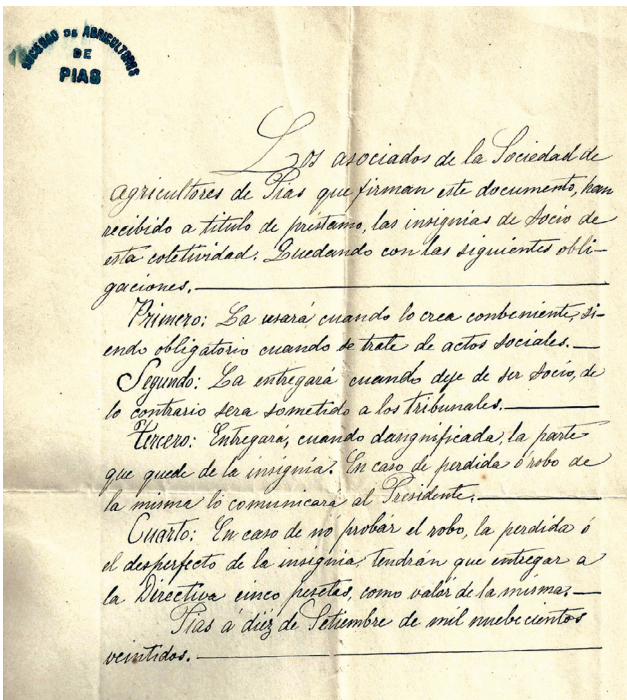 SOCIEDAD DE AGRICULTORES
DE
PIAS
Los asociados de la Sociedad de
agricultores de Pias que firman este documento, han
recibido a titulo de préstamo, las insignias de socio de
esta coletividad. Quedando con las siguientes obli-
gaciones.
Primero: La usará, cuando lo crea conbeniente, si-
endo obligatorio cuando se trate de actos sociales.
Segundo: La entregará cuando deje de ser socio, de
lo contrario sera sometido a los tribunales.
Tercero: Entregará, cuando dangnificada, la parte
que quede de la insignia. En caso de perdida ó robo de
la misma lo comunicará al Presidente.
Cuarto: En caso de no probar el robo, la perdida ó
el desperfecto de la insignia, tendrán que entregar a
la Directiva cinco pesetas, como valor de la misma.
Pias á diez de Setiembre de mil nuebecientos
veintidos.